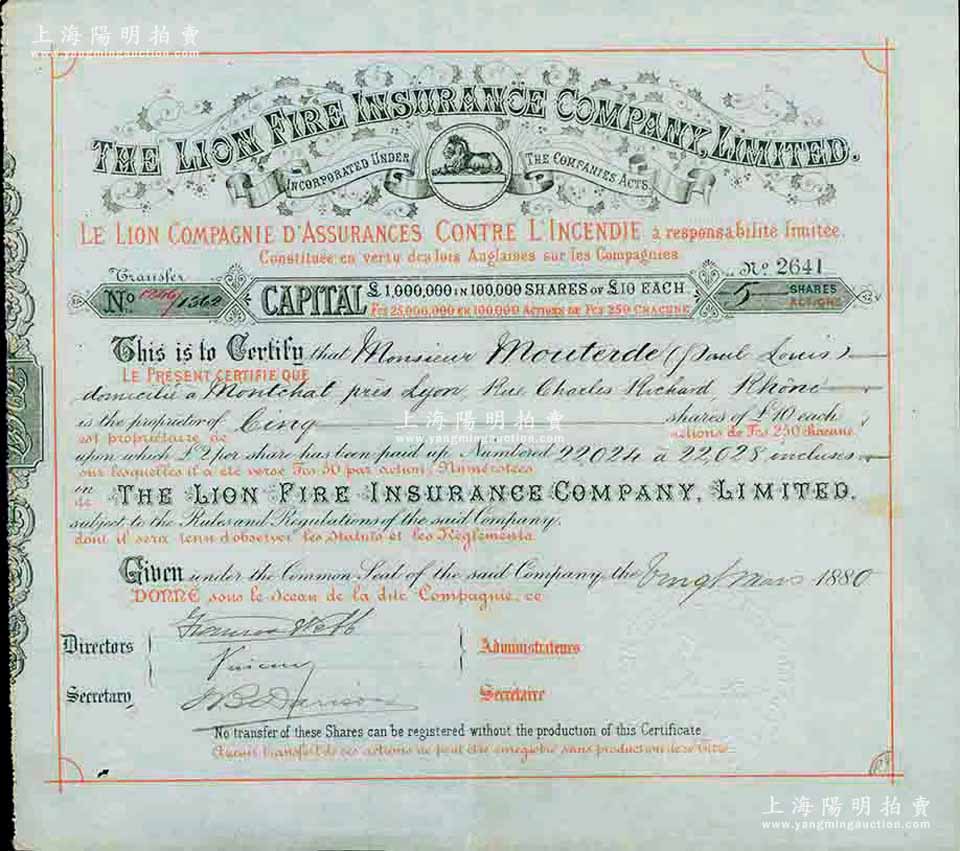 上海陽明拍賣
www.yangmingauction.com
THE LION FIRE INSURANCE COMPANY, LIMITED.
INCORPORATED UNDER THE COMPANIES ACTS.
LE LION COMPAGNIE D'ASSURANCES CONTRE L'INCENDIE à responsabilité limitée.
Constituée en vertu des lois Anglaises sur les Compagnies
Transfer
No. 2641
No. /1362
CAPITAL £1,000,000 IN 100,000 SHARES OF £10 EACH
Fcs 25,000,000 EN 100,000 ACTIONS DE Fcs 250 CHACUNE
5 SHARES
ACTIONS
This is to Certify that Monsieur Mouterde (Paul Louis)
LE PRÉSENT CERTIFIE QUE
domicilié à Montchat près Lyon, Rue Charles Richard, Rhône
is the proprietor of Cinq shares of £10 each
est propriétaire de actions de Fcs 250 chacune
上海陽明拍賣
www.yangmingauction.com
upon which £2 per share has been paid up Numbered 22,024 à 22,028 incluses
sur lesquelles il a été versé Fcs 50 par action, Numérotées
in
de THE LION FIRE INSURANCE COMPANY, LIMITED.
subject to the Rules and Regulations of the said Company.
dont il sera tenu d'observer les Statuts et les Règlements.
Given under the Common Seal of the said Company, the Vingt Mars 1880
DONNÉ sous le Sceau de la dite Compagnie, ce
Directors
Administrateurs
Secretary
Secrétaire
No transfer of these Shares can be registered without the production of this Certificate
Aucun transfert de ces actions ne peut être enregistré sans production de ce titre
上海陽明拍賣
www.yangmingauction.com